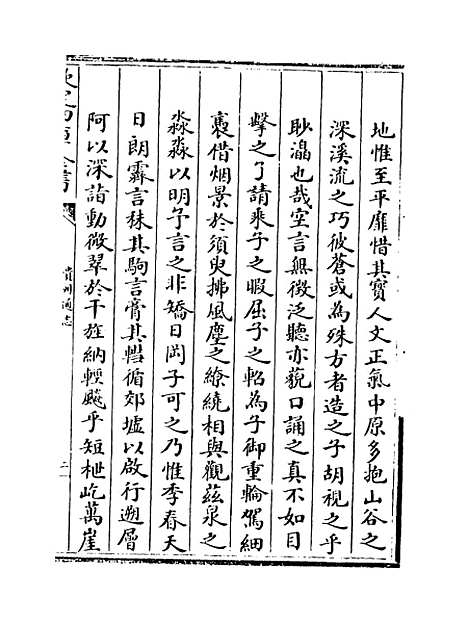 地惟至平靡惜其寳人文正氣中原多抱山谷之
深溪流之巧彼蒼或為殊方者造之子胡視之乎
眇濇也哉空言無徵泛聽亦藐口誦之真不如目
擊之了請乘子之暇屈子之軺為子御重輪駕細
裹借烟景於須臾拂風塵之繚繞相與觀兹泉之
淼淼以明予言之非矯日岡子可之乃惟季春天
日朗霽言秣其駒言膏其轄循郊墟以啟行遡層
阿以深詣動微翠於干旌納輕飈乎短枻屹萬崖
欽定四庫全書
貴州通志
二